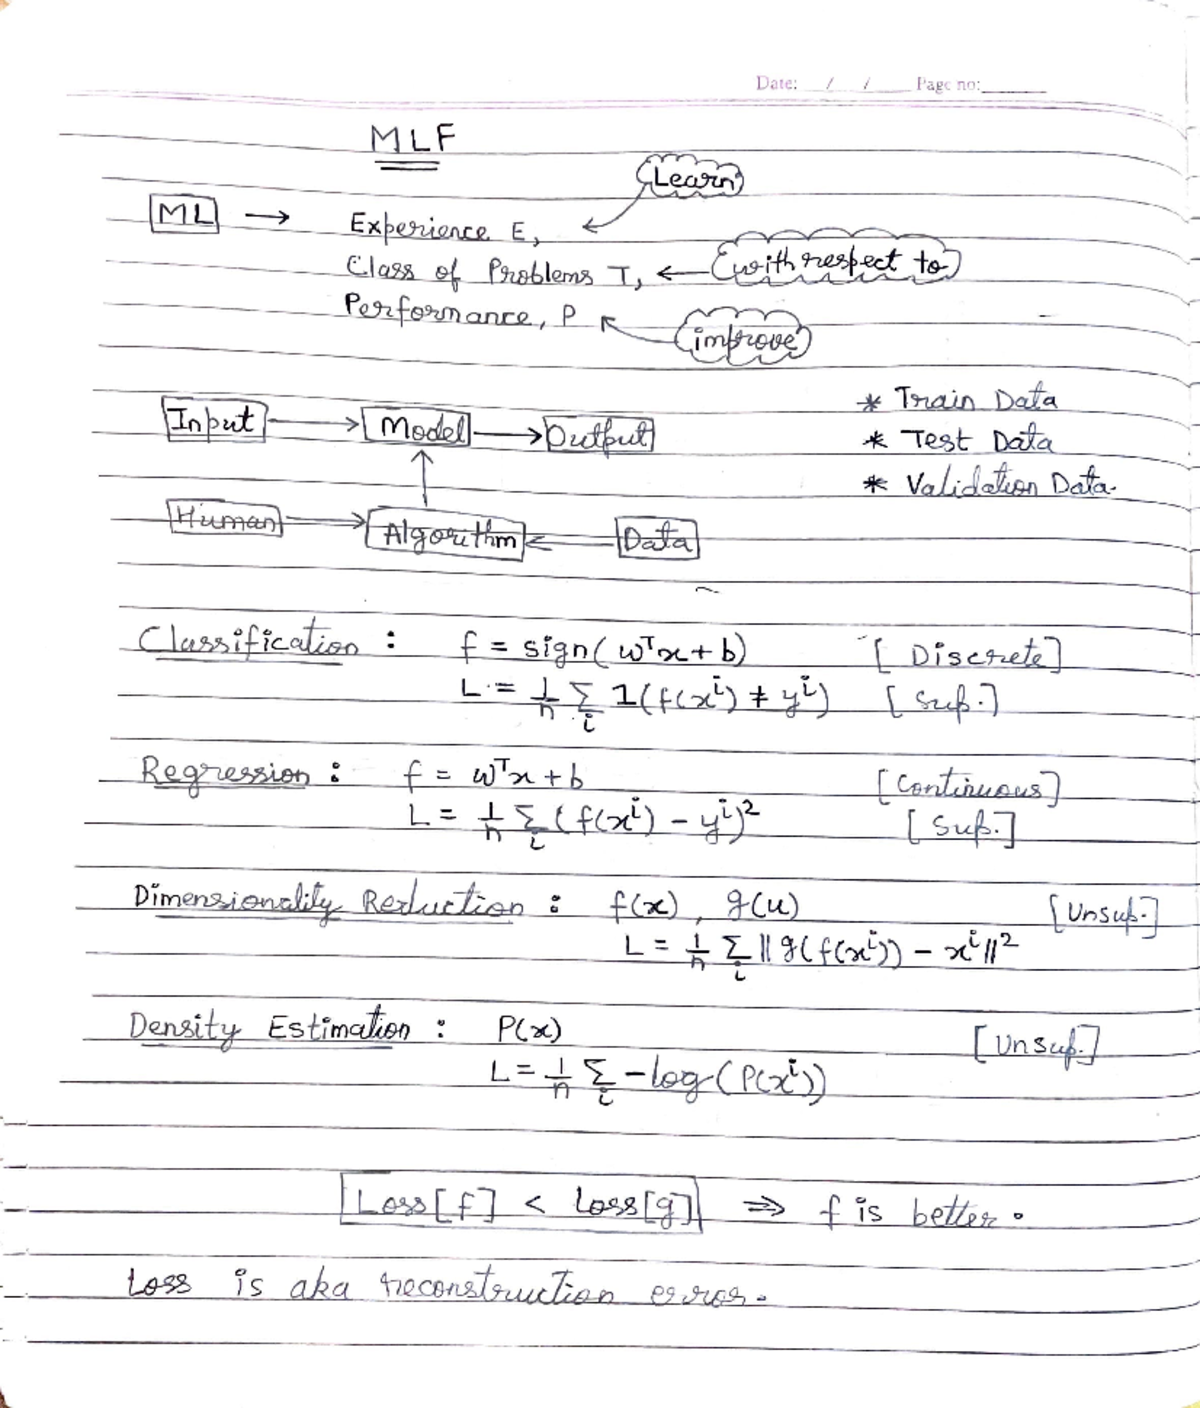 Date: / / Page no:
MLF
Learn
ML → Experience E,
Class of Problems T, ← with respect to
Performance, P
improve
* Train Data
Input → Model → Output
* Test Data
* Validation Data.
Human → Algorithm ← Data
Classification : f = sign(wᵀx + b) [Discrete]
L = 1/n Σᵢ 1(f(xⁱ) ≠ yⁱ) [Sup.]
Regression : f = wᵀx + b [Continuous]
L = 1/n Σᵢ (f(xⁱ) − yⁱ)² [Sup.]
Dimensionality Reduction : f(x), g(u) [Unsup.]
L = 1/n Σᵢ ‖g(f(xⁱ)) − xⁱ‖²
Density Estimation : P(x) [Unsup.]
L = 1/n Σᵢ −log(P(xⁱ))
Loss[f] < Loss[g] ⇒ f is better.
Loss is aka reconstruction error.